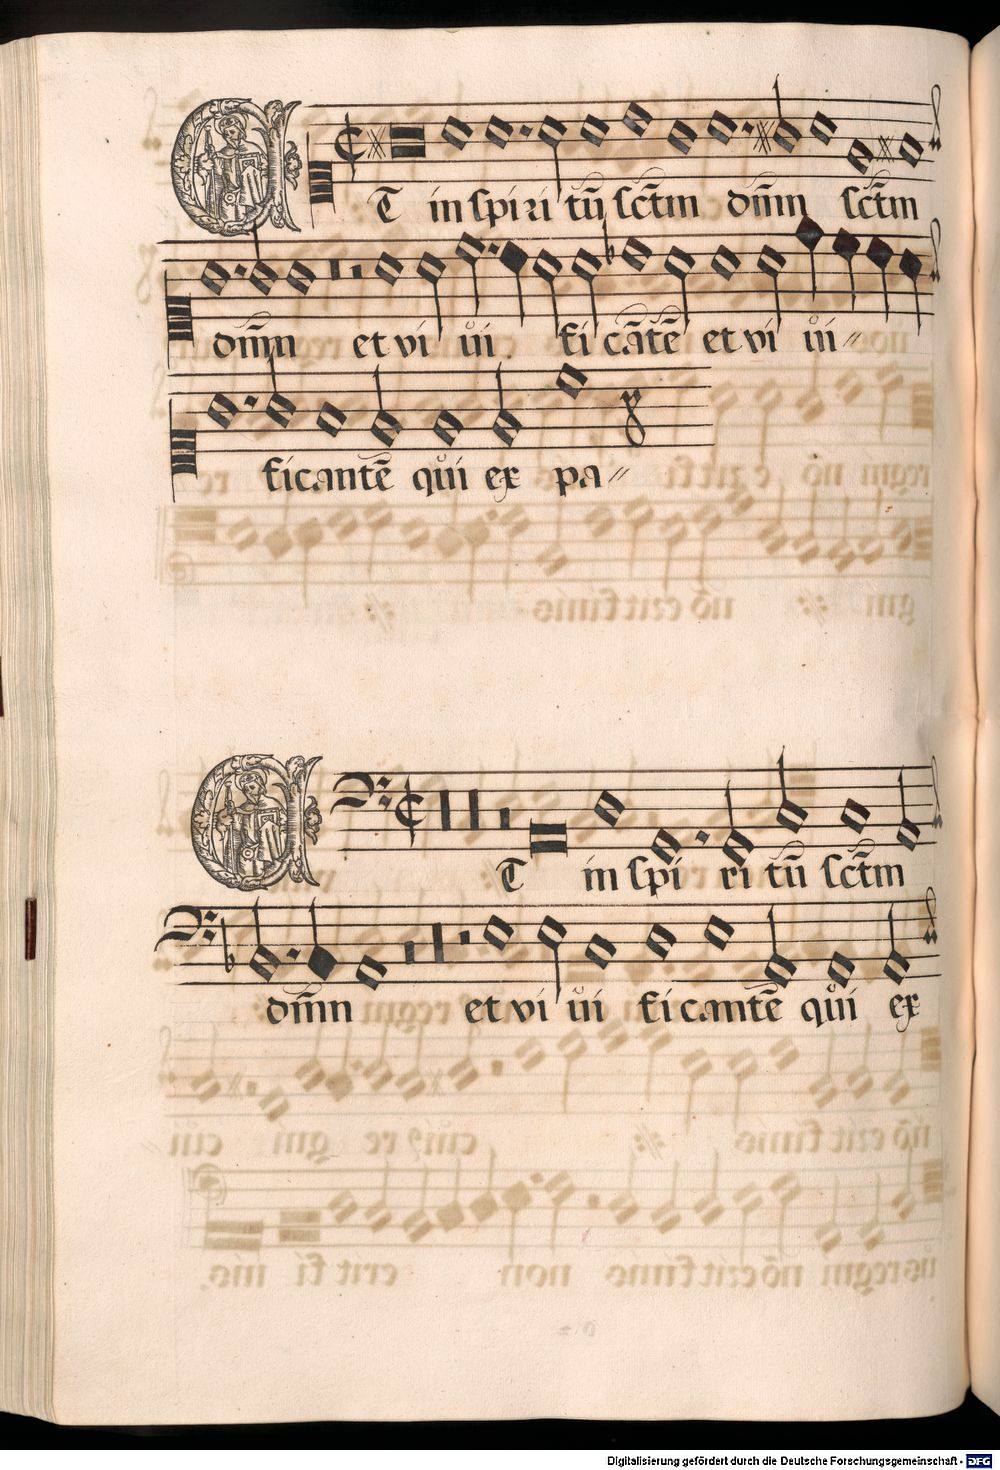 ET in spi ri tū sctm dnm sctm
dnm et vi ui fi cātē et vi ui〃
ficantē qui ex pa〃
ET in spi ri tū sctm
dnm et vi ui ficantē qui ex
Digitalisierung gefördert durch die Deutsche Forschungsgemeinschaft - DFG